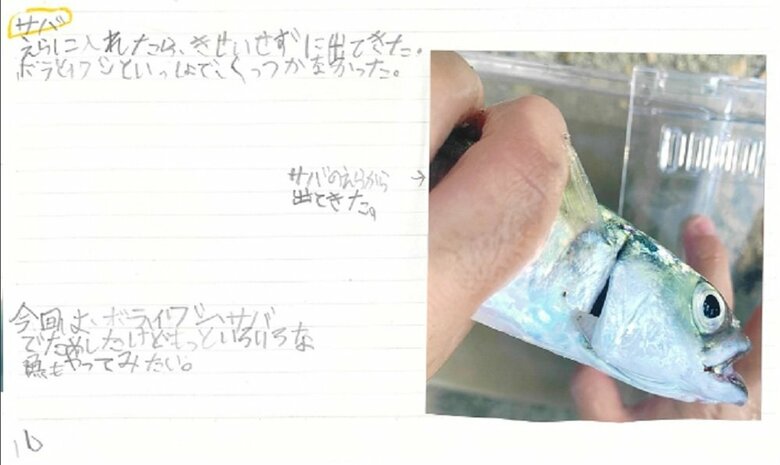 サバ
えらに入れたら、きせいせずに出てきた。
ボラとイワシといっしょで、くっつかなかった。
サバのえらから →
出てきた。
今回は、ボラ、イワシ、サバ
でためしたけどもっといろいろな
魚もやってみたい。
16